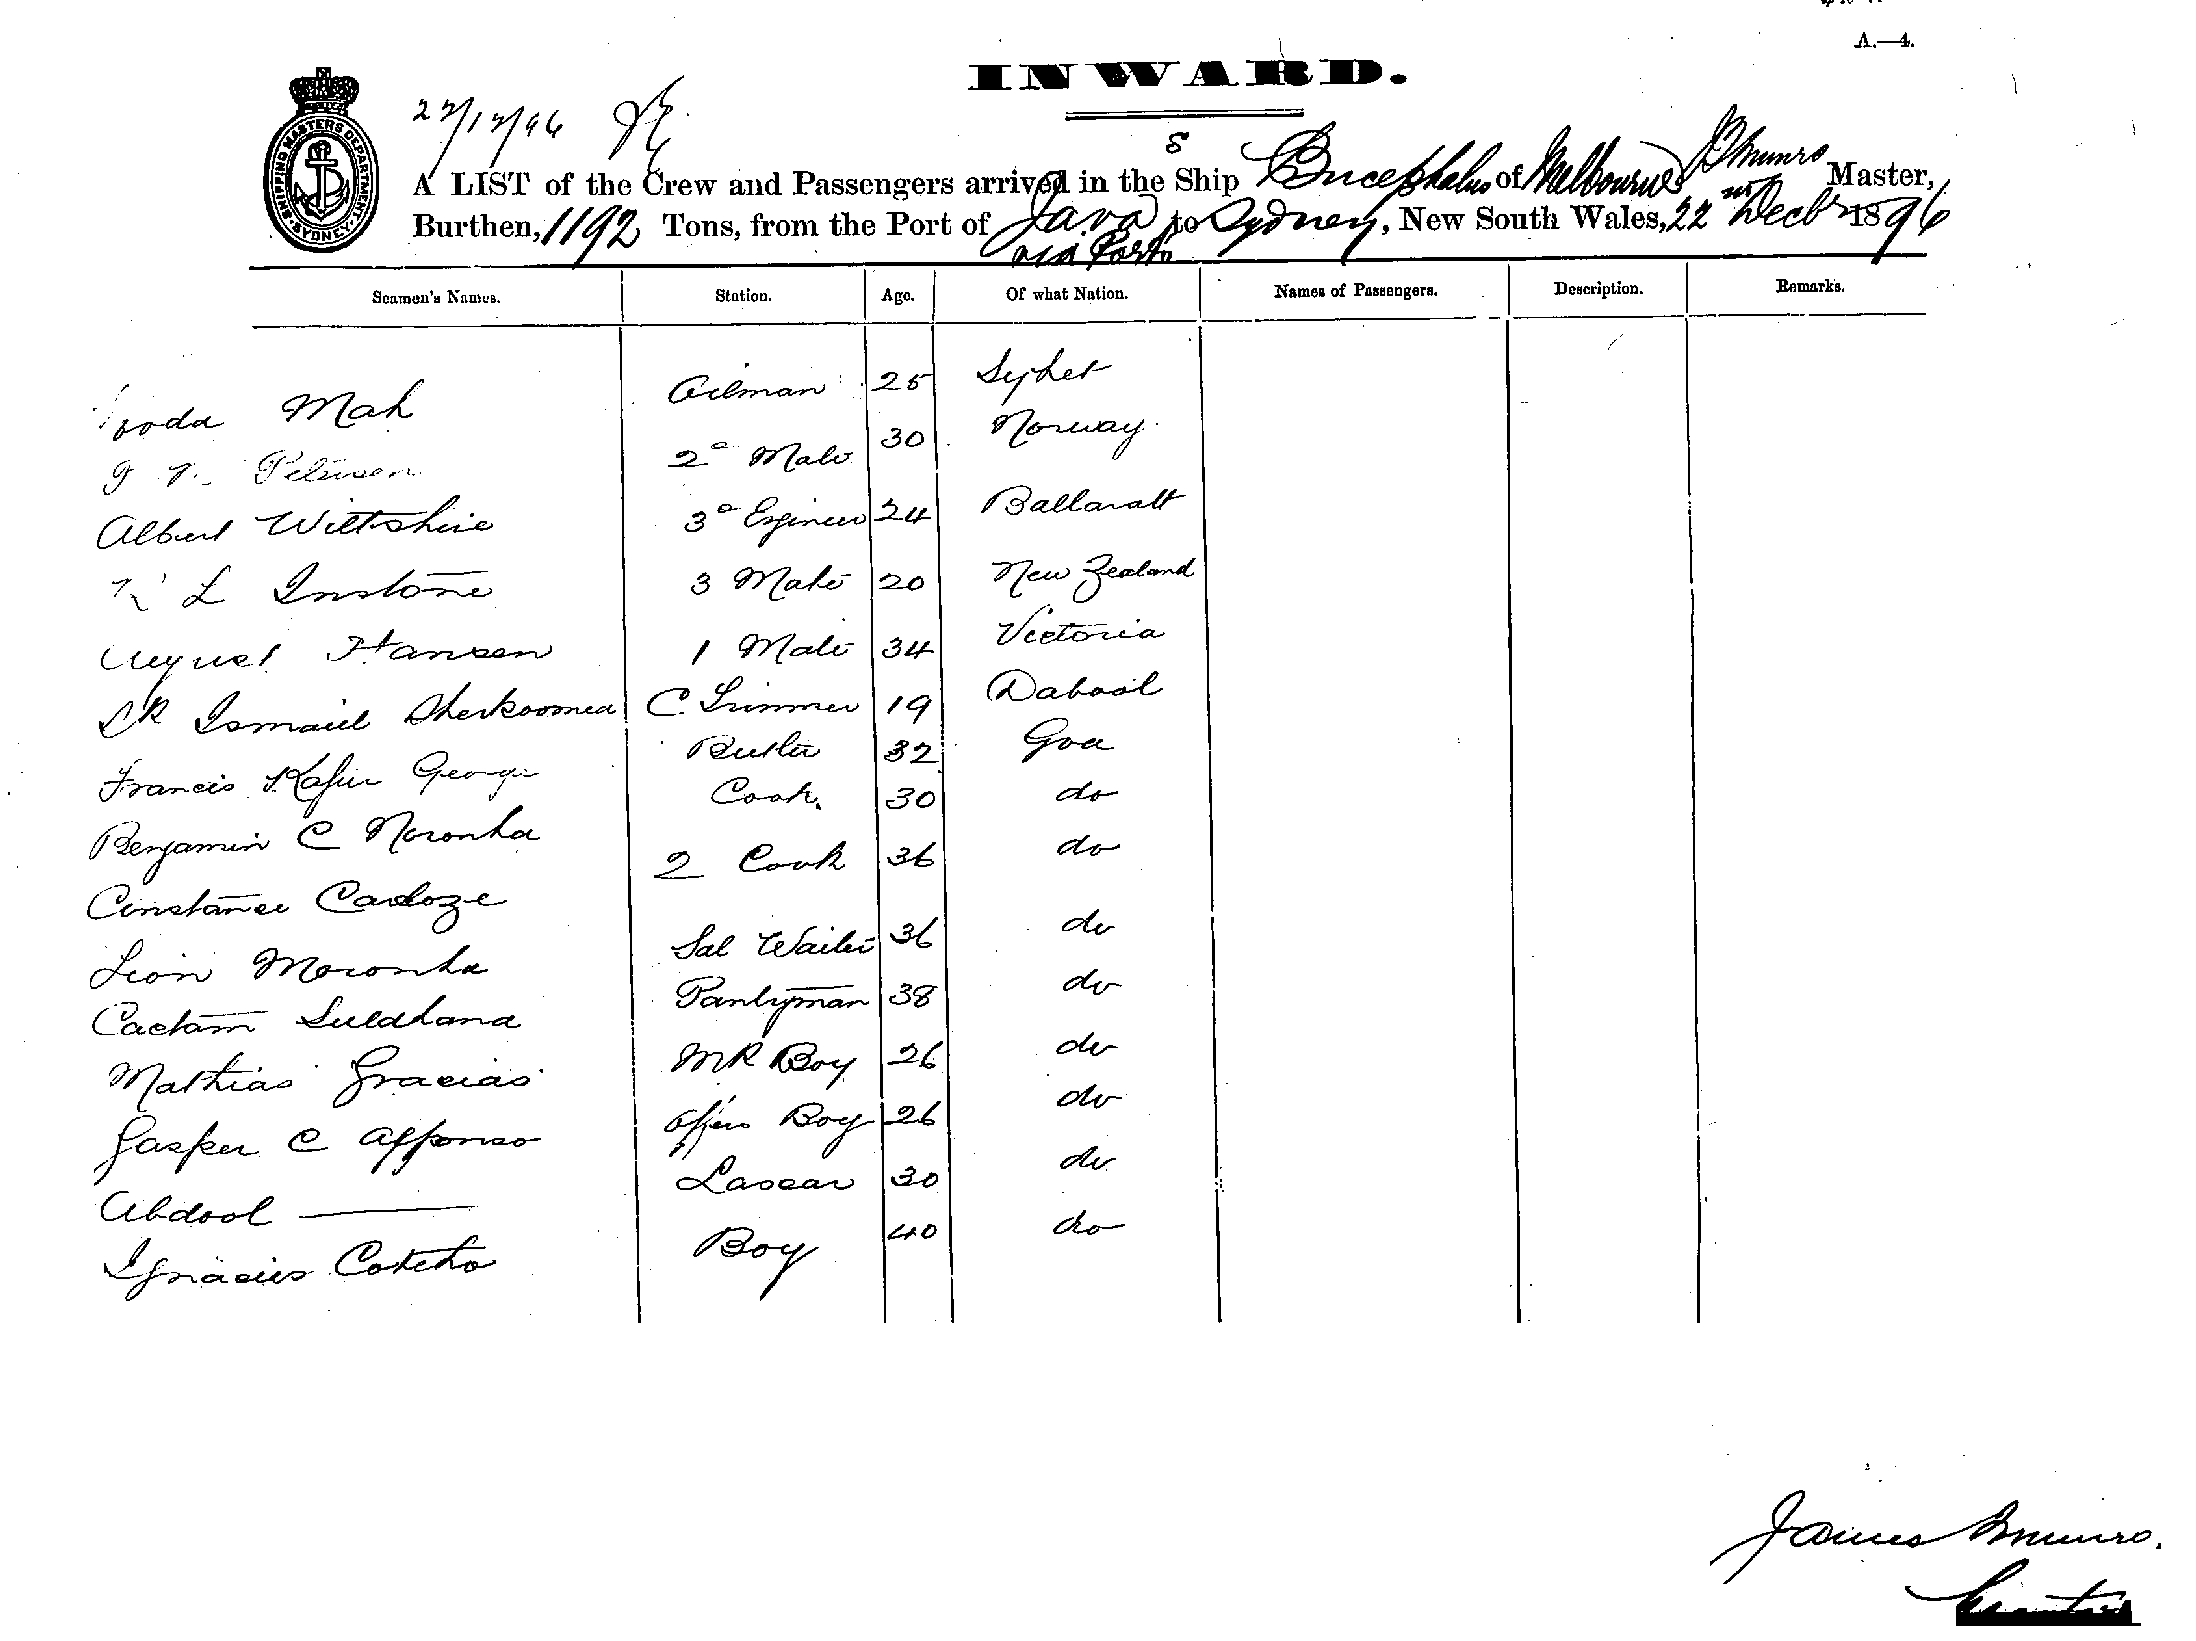 A.—4.
INWARD.
22/12/96
SHIPPING MASTERS DEPARTMENT SYDNEY
S
A LIST of the Crew and Passengers arrived in the Ship Bucephalus of Melbourne J Munro Master,
Burthen, 1192 Tons, from the Port of Java to Sydney, New South Wales, 22 Decbr 1896
via Ports
Seamen's Names. Station. Age. Of what Nation. Names of Passengers. Description. Remarks.
Mah Oilman 25 Syhet
Petersen 2d Mate 30 Norway
Albert Wiltshire 3d Engineer 24 Ballaratt
L Instone 3 Mate 20 New Zealand
August Hansen 1 Mate 34 Victoria
SK Ismaiel C. Trimmer 19 Dabool
Francis George Butler 32 Goa
Benjamin C Noronha Cook. 30 do
Constance Cardoze 2 Cook 36 do
Lion Moronha Sal Waiter 36 do
Caetam Suldhana Pantryman 38 do
Mathias Gracias MR Boy 26 do
Gasper C Affonso Boy 26 do
Abdool Lascar 30 do
Ignacius Cotcho Boy 40 do
James Munro.